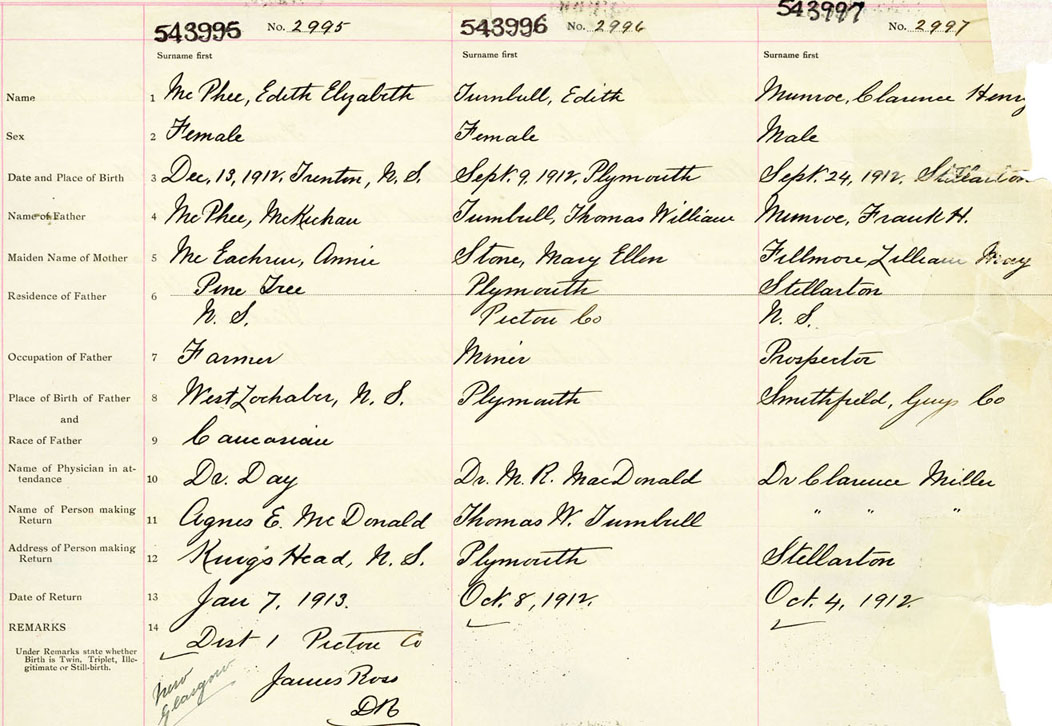 543995 No. 2995 543996 No. 2996 543997 No. 2997
Surname first Surname first Surname first
Name 1 Mc Phee, Edith Elizabeth Turnbull, Edith Munroe, Clarence Henry
Sex 2 Female Female Male
Date and Place of Birth 3 Dec, 13, 1912, Trenton, N. S. Sept. 9, 1912, Plymouth Sept. 24, 1912, Stellarton
Name of Father 4 Mc Phee, McKichan Turnbull, Thomas William Munroe, Frank H.
Maiden Name of Mother 5 Mc Eachren, Annie Stone, Mary Ellen Fillmore, Lillian May
Residence of Father 6 Pine Tree Plymouth Stellarton
N. S. Pictou Co N. S.
Occupation of Father 7 Farmer Miner Prospector
Place of Birth of Father 8 West Lochaber, N. S. Plymouth Smithfield, Guys Co
and
Race of Father 9 Caucasian
Name of Physician in at-
tendance 10 Dr. Day Dr. M. R. MacDonald Dr Clarence Miller
Name of Person making
Return 11 Agnes E. Mc Donald Thomas W. Turnbull " " "
Address of Person making
Return 12 King's Head, N. S. Plymouth Stellarton
Date of Return 13 Jan 7, 1913. Oct. 8, 1912. Oct. 4, 1912.
REMARKS 14 Dist 1 Pictou Co
Under Remarks state whether
Birth is Twin, Triplet, Ille-
gitimate or Still-birth.
New
Glasgow
James Ross
DR